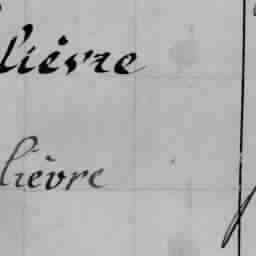 lièvre
lièvre